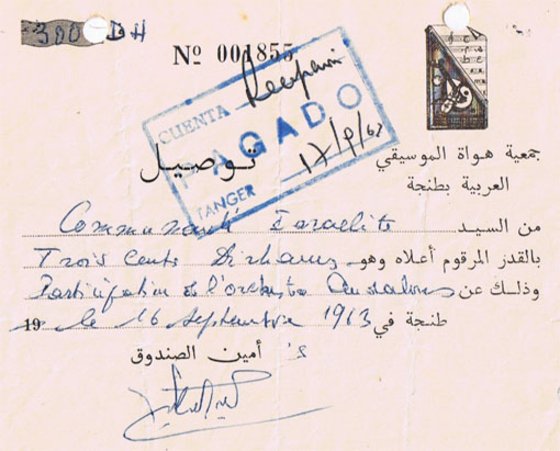 300 DH
Nº 001855
CUENTA
PAGADO
TANGER
17/9/63
توصيل
جمعية هواة الموسيقي
العربية بطنجة
من السيد Communauté Israelite
Trois cents Dirhams بالقدر المرقوم أعلاه وهو
وذلك عن Participation à l'orchestre Andalous
طنجة في le 16 septembre 1963 19
أمين الصندوق